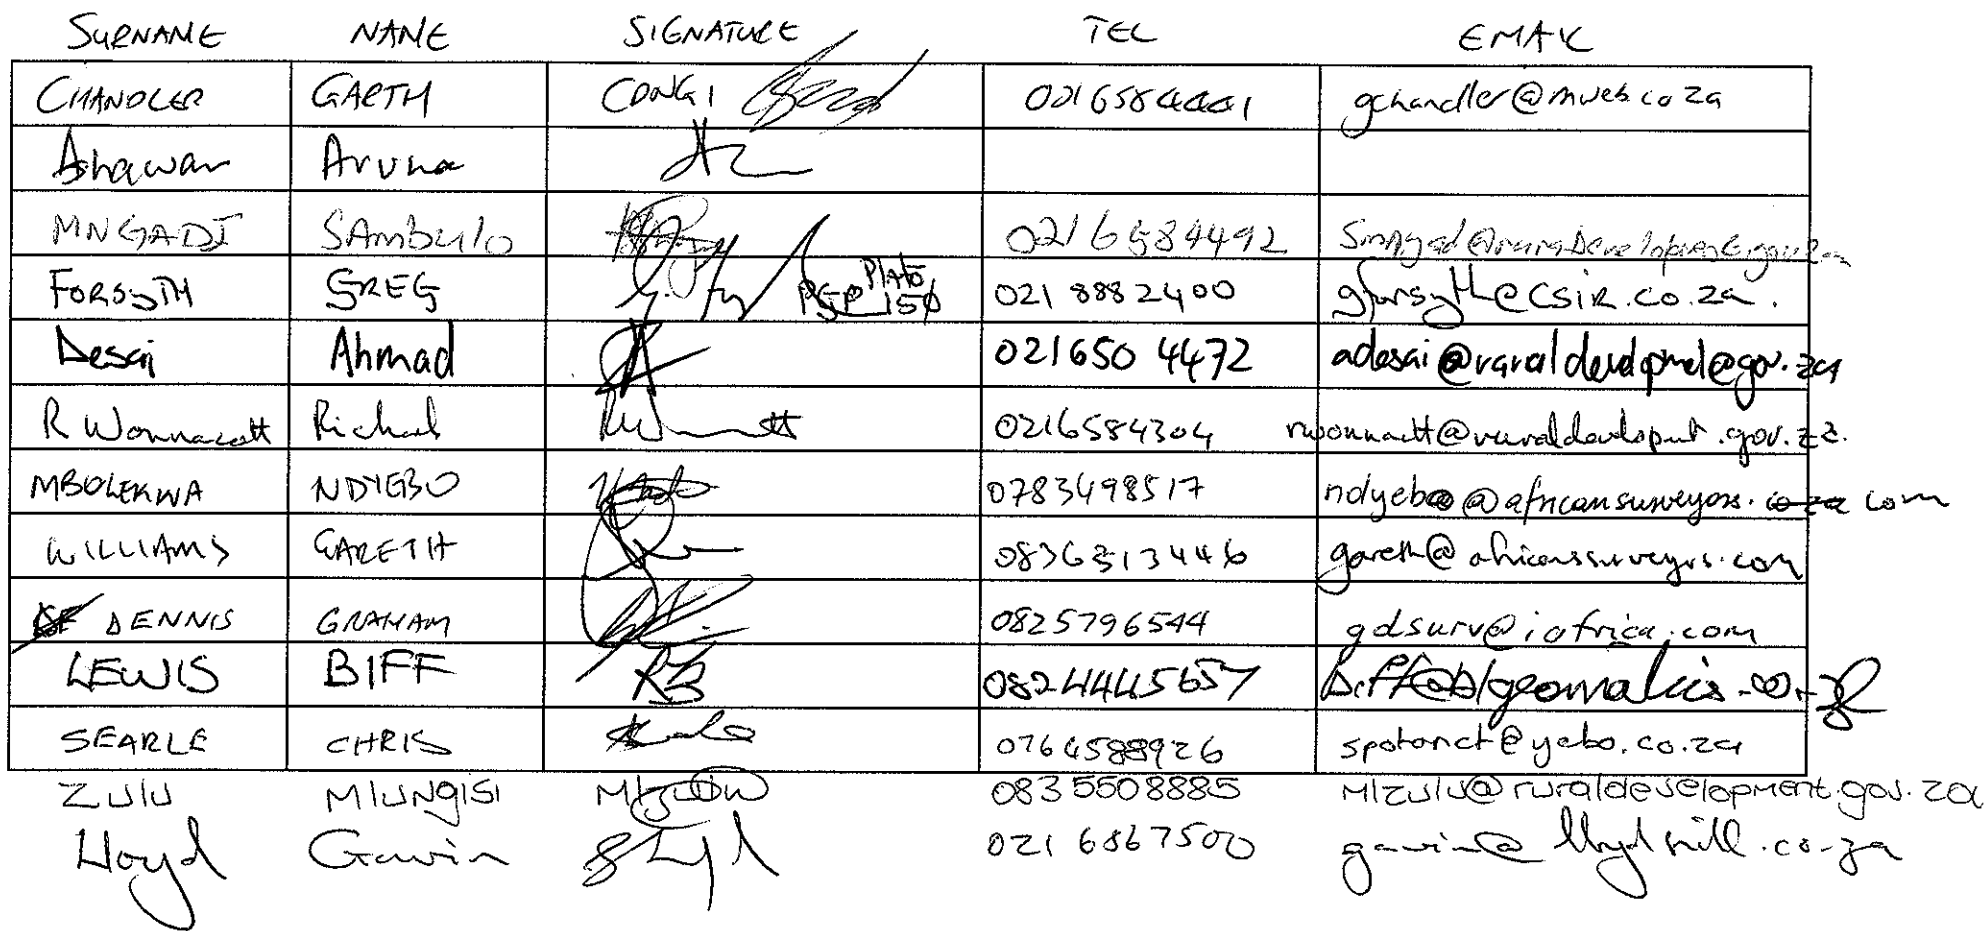 SURNAME NAME SIGNATURE TEL EMAIL
CHANDLER GARTH CDNGI 0216584441 gchandler@mweb.co za
Aruna
MNGADI SAMBULO 0216584492
FORSYTH GREG Plato PGP 0150 021 8882400 gforsyth@CSIR.co.za.
Desai Ahmad 021650 4472 adesai@ruraldevelopmet@gov.za
R Wonnacott Richard 0216584304
MBOLEKWA NDYEBO 0783498517 ndyebo@africansurveyors. com
WILLIAMS GARETH 0836313446 gareth@africansurveyors.com
DENNIS GRAHAM 0825796544 gdsurv@iafrica.com
LEWIS BIFF 0824445657 Biff@blgeomatics.co.za
SEARLE CHRIS 0764588926 spotonct@yebo.co.za
ZULU MlUNGISI 0835508885 Mlzulu@ruraldevelopment.gov.za
Lloyd Gavin 021 6867500 gavin@lloydhill.co.za